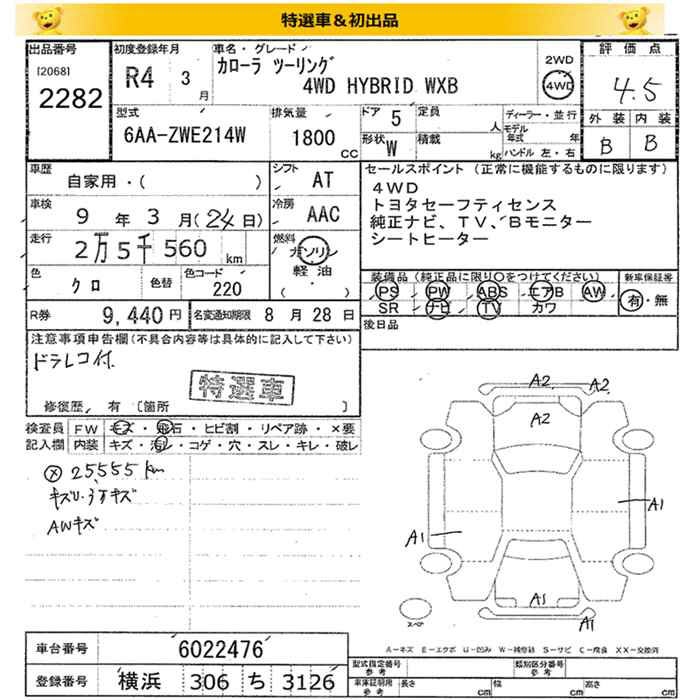 特選車＆初出品
出品番号
[2068]
2282
初度登録年月
R4 3
月
車名・グレード
カローラ ツーリング
4WD HYBRID WXB
2WD
4WD
評価点
4.5
外装 内装
B B
型式
6AA-ZWE214W
排気量
1800
cc
ドア 5
定員
人
形状 W
積載
kg
ディーラー・並行
モデル年式 年
ハンドル 左・右
車歴
自家用・( )
シフト AT
車検
9 年 3 月(24日)
冷房 AAC
走行
2万5千560 km
燃料
ガソリン
軽油
( ・ )
色
クロ
色替
色コード
220
R券
9,440円
名変通知期限 8 月 28 日
セールスポイント (正常に機能するものに限ります)
4WD
トヨタセーフティセンス
純正ナビ、TV、Bモニター
シートヒーター
装備品(純正品に限り○をつけてください)
PS PW ABS エアB AW
SR ナビ TV カワ
新車保証書
有・無
後日品
注意事項申告欄(不具合内容等は具体的に記入して下さい)
ドラレコ付
特選車
修復歴, 有 [箇所 ]
検査員
記入欄
FW キズ・飛石・ヒビ割・リペア跡・×要
内装 キズ・汚レ・コゲ・穴・スレ・キレ・破レ
25,555 km
キズリ・うすキズ
AWキズ
A2
A2
A2
A1
A1
A1
A1
スペ
A－キズ E－エクボ U－凹み W－補修跡 S－サビ C－腐食 XX－交換済
車台番号 6022476
登録番号 横浜 306 ち 3126
型式指定番号
参考
類別区分番号
参考
車庫証明用
参考
長さ cm
幅 cm
高さ cm